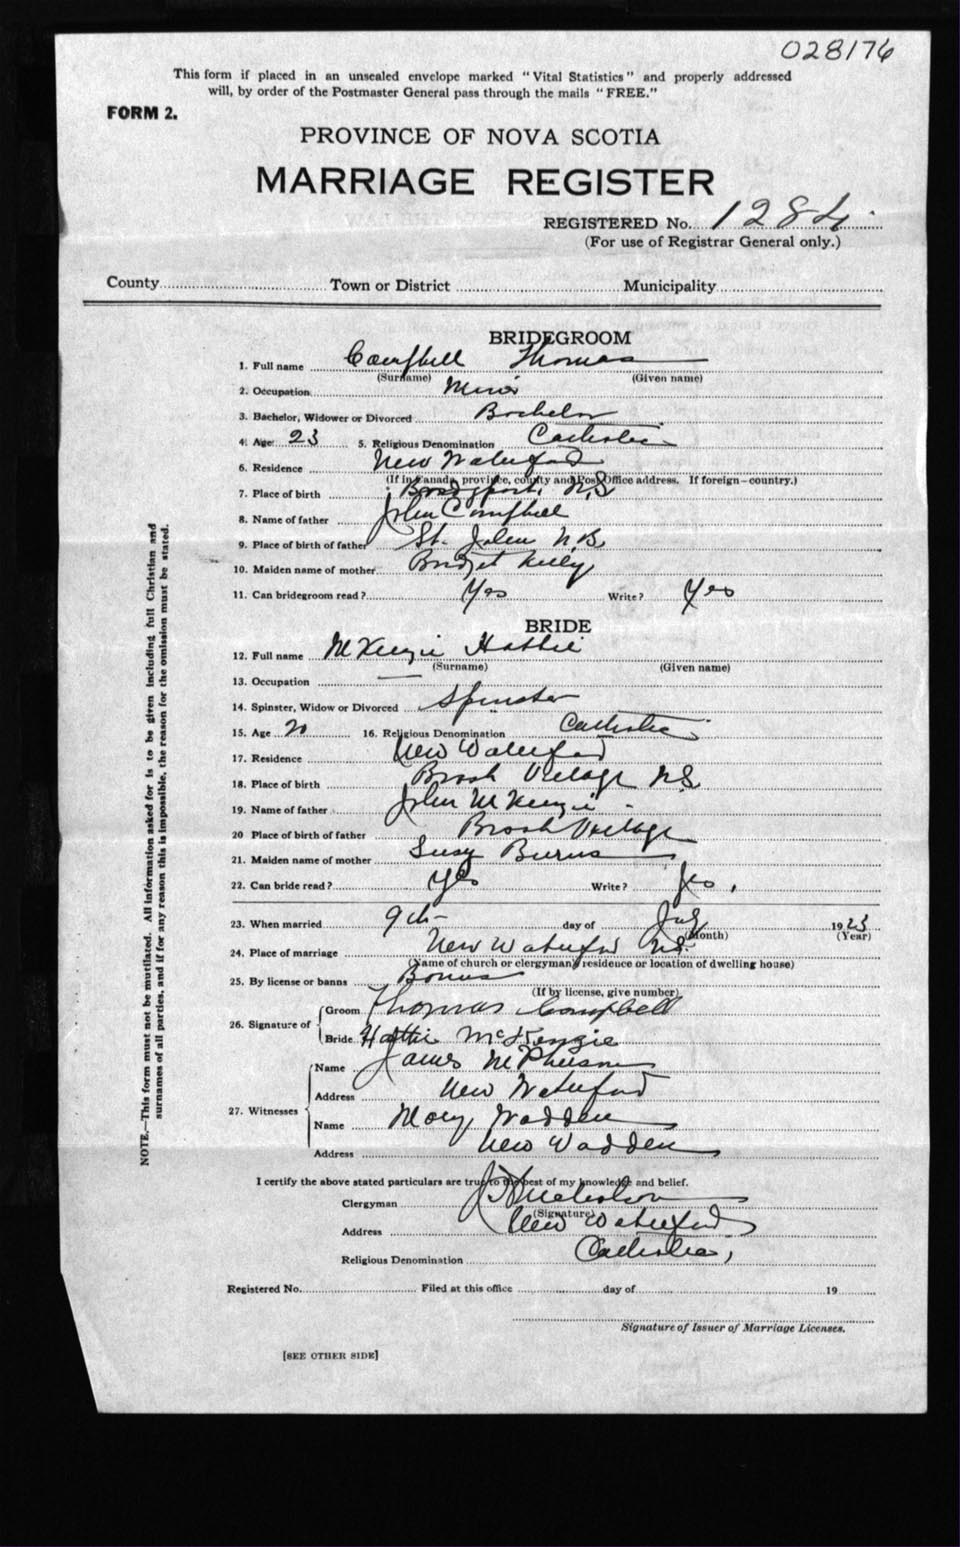 028176
This form if placed in an unsealed envelope marked "Vital Statistics" and properly addressed
will, by order of the Postmaster General pass through the mails "FREE."
FORM 2.
PROVINCE OF NOVA SCOTIA
MARRIAGE REGISTER
REGISTERED No. 1284
(For use of Registrar General only.)
County Town or District Municipality
BRIDEGROOM
1. Full name Campbell Thomas
(Surname) (Given name)
2. Occupation Miner
3. Bachelor, Widower or Divorced Bachelor
4. Age 23 5. Religious Denomination Catholic
6. Residence New Waterford
(If in Canada, province, county and Post Office address. If foreign—country.)
7. Place of birth Bridgeport, N.S
8. Name of father John Campbell
9. Place of birth of father St. John N.B.
10. Maiden name of mother Bridget Kelly
11. Can bridegroom read? Yes Write? Yes
BRIDE
12. Full name McKenzie Hattie
(Surname) (Given name)
13. Occupation —
14. Spinster, Widow or Divorced Spinster
15. Age 20 16. Religious Denomination Catholic
17. Residence New Waterford
18. Place of birth Brook Village N.S.
19. Name of father John McKenzie
20 Place of birth of father Brook Village
21. Maiden name of mother Susy Burns
22. Can bride read? Yes Write? Yes.
23. When married 9th day of July 1923
(Month) (Year)
24. Place of marriage New Waterford N.S.
(Name of church or clergyman's residence or location of dwelling house)
25. By license or banns Banns
(If by license, give number)
26. Signature of Groom Thomas Campbell
Bride Hattie McKenzie
27. Witnesses Name James McPherson
Address New Waterford
Name Mary Wadden
Address New Wadden
I certify the above stated particulars are true to the best of my knowledge and belief.
Clergyman J H Nicholson
(Signature)
Address New Waterford
Religious Denomination Catholic,
Registered No. Filed at this office day of 19
Signature of Issuer of Marriage Licenses.
[SEE OTHER SIDE]
NOTE.—This form must not be mutilated. All information asked for is to be given including full Christian and
surnames of all parties, and if for any reason this is impossible, the reason for the omission must be stated.